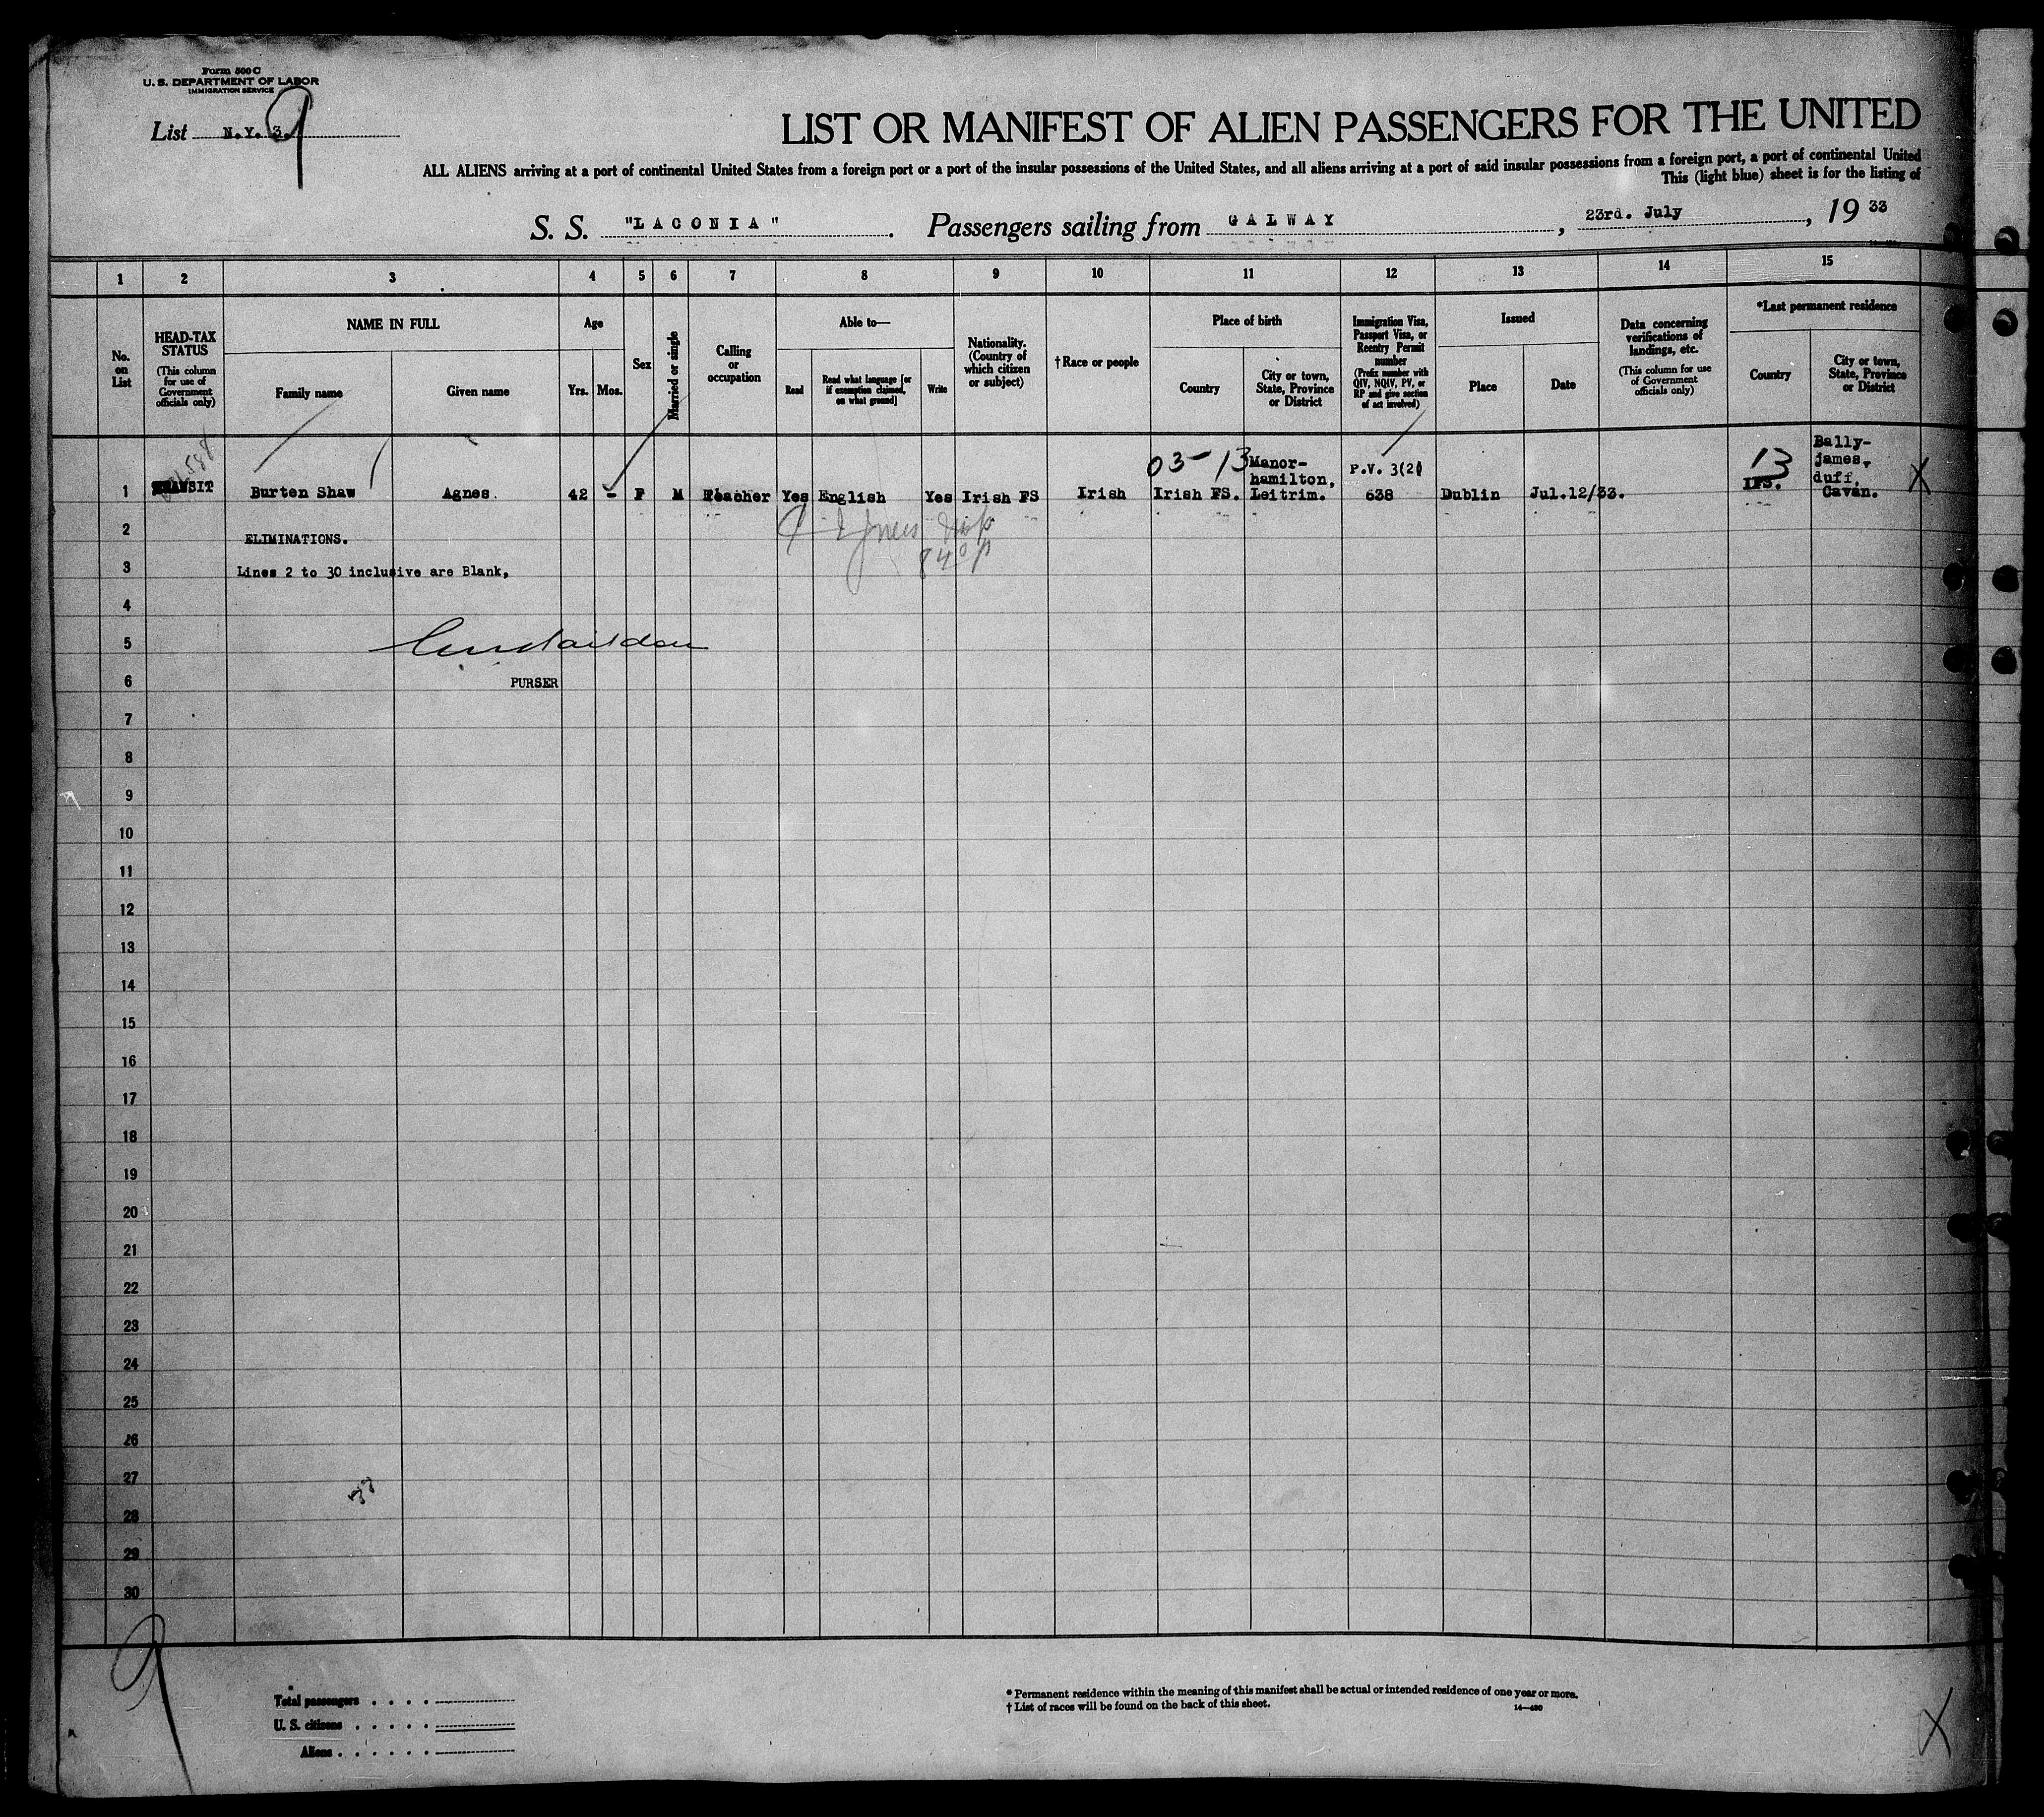 Form 500 C
U. S. DEPARTMENT OF LABOR
IMMIGRATION SERVICE
List N.Y. 3.
9
LIST OR MANIFEST OF ALIEN PASSENGERS FOR THE UNITED
ALL ALIENS arriving at a port of continental United States from a foreign port or a port of the insular possessions of the United States, and all aliens arriving at a port of said insular possessions from a foreign port, a port of continental United
This (light blue) sheet is for the listing of
S. S. "LACONIA" . Passengers sailing from GALWAY , 23rd. July , 19 33
1 2 3 4 5 6 7 8 9 10 11 12 13 14 15
No. on List
HEAD-TAX STATUS
(This column for use of Government officials only)
NAME IN FULL
Family name
Given name
Age
Yrs.
Mos.
Sex
Married or single
Calling or occupation
Able to—
Read
Read what language [or if exemption claimed, on what ground]
Write
Nationality. (Country of which citizen or subject)
†Race or people
Place of birth
Country
City or town, State, Province or District
Immigration Visa, Passport Visa, or Reentry Permit number
(Prefix number with QIV, NQIV, PV, or RP and give section of act involved)
Issued
Place
Date
Data concerning verifications of landings, etc.
(This column for use of Government officials only)
*Last permanent residence
Country
City or town, State, Province or District
03-13
Manor-
hamilton,
P.V. 3(2)
13
Bally-
james,
duff,
1 TRANSIT Burten Shaw Agnes. 42 - F M Teacher Yes English Yes Irish FS Irish Irish FS. Leitrim. 638 Dublin Jul.12/33. IFS. Cavan. X
2 ELIMINATIONS.
3 Lines 2 to 30 inclusive are Blank,
4
5
6 PURSER
7
8
9
10
11
12
13
14
15
16
17
18
19
20
21
22
23
24
25
26
27
28
29
30
9
Total passengers . . . .
U. S. citizens . . . . .
Aliens . . . . . .
* Permanent residence within the meaning of this manifest shall be actual or intended residence of one year or more.
† List of races will be found on the back of this sheet.
14—480
X